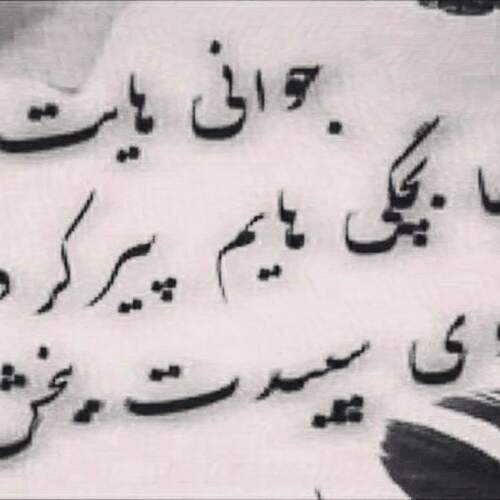 جوانی هایت
با بچگی هایم پیر کرد
موی سپیدت ببخش